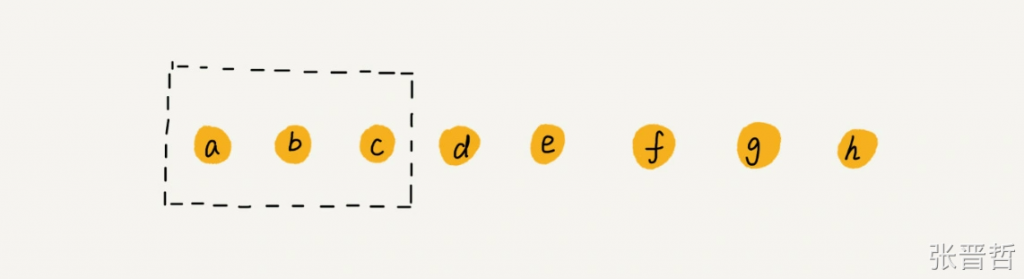 a b c d e f g h
张晋哲